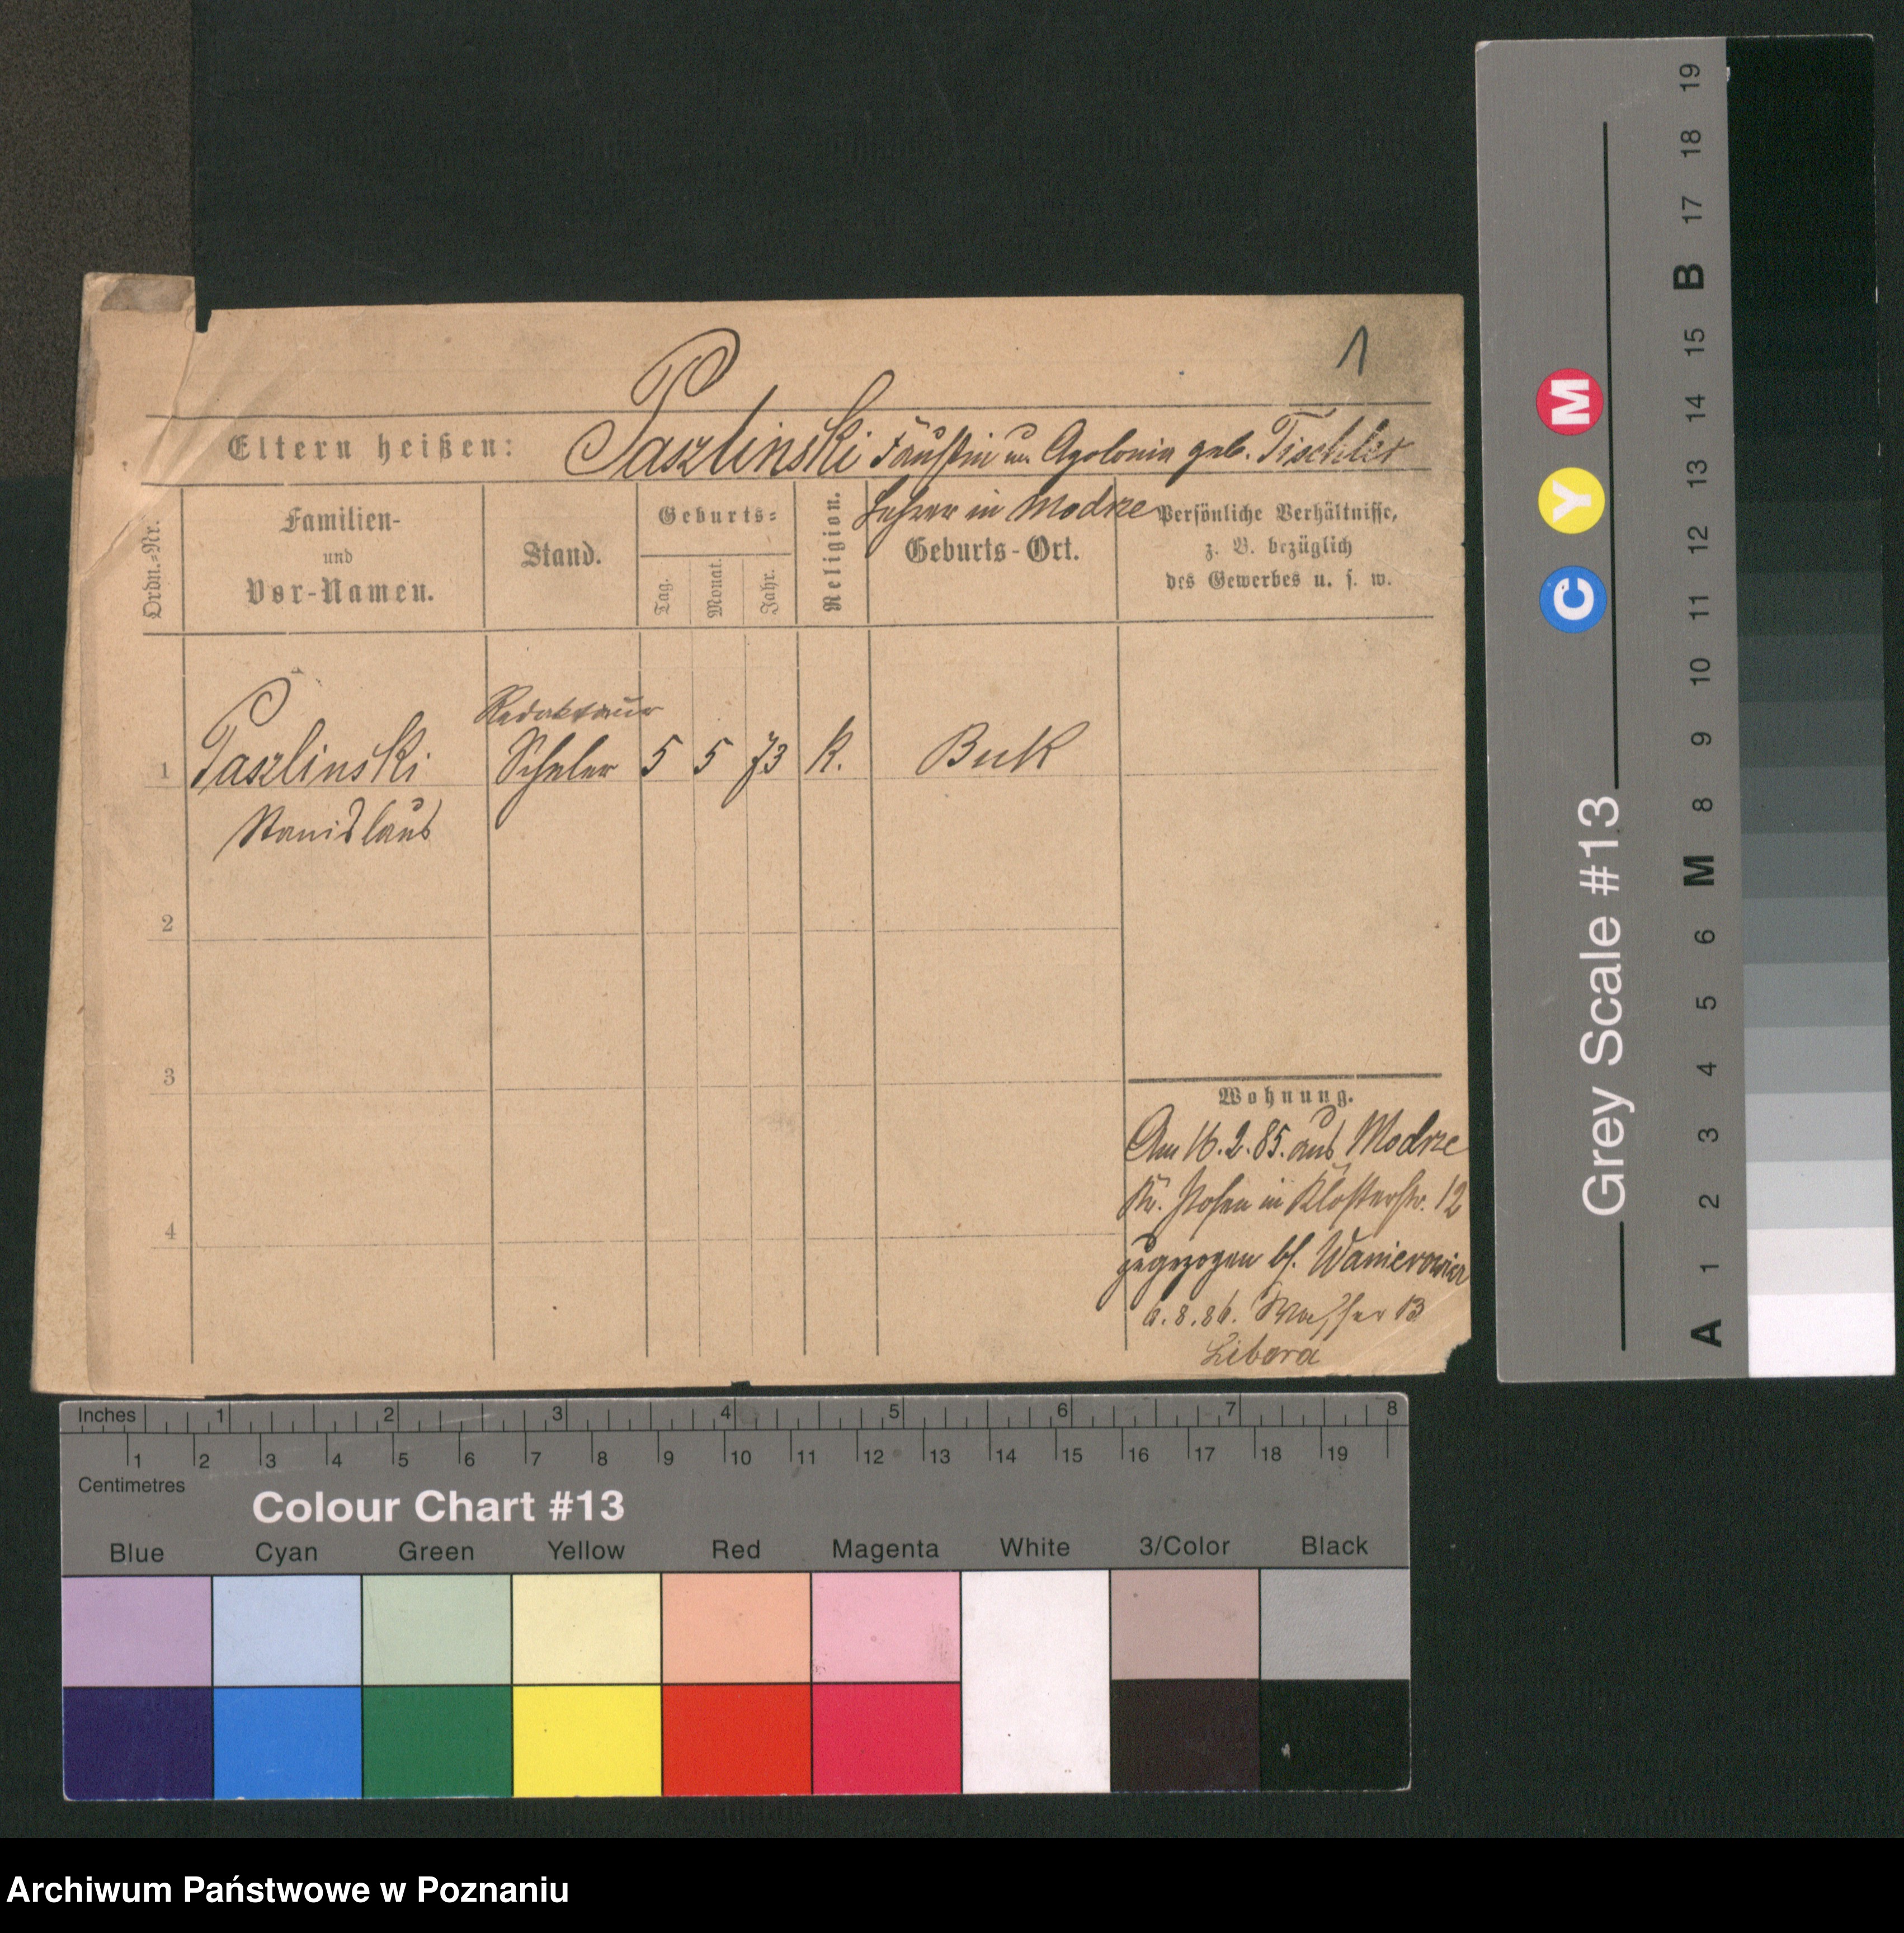 1
Eltern heißen: Paszlinski Faustin u. Apolonia geb. Tischler
Lehrer in Modrze
Ordn.-Nr.
Familien-
und
Vor-Namen.
Stand.
Geburts=
Tag.
Monat.
Jahr.
Religion.
Geburts-Ort.
Persönliche Verhältnisse,
z. B. bezüglich
des Gewerbes u. s. w.
Redakteur
1 Paszlinski Schüler 5 5 73 k. Buk
Stanislaus
2
3
4
Wohnung.
Am 16.2.85. aus Modrze
Kr. Posen in Klosterstr. 12
zugezogen bf.
6.8.86. Wasser 13
Libera
Inches 1 2 3 4 5 6 7 8
1 2 3 4 5 6 7 8 9 10 11 12 13 14 15 16 17 18 19
Centimetres
Colour Chart #13
Blue Cyan Green Yellow Red Magenta White 3/Color Black
Grey Scale #13
C Y M
A 1 2 3 4 5 6 M 8 9 10 11 12 13 14 15 B 17 18 19
Archiwum Państwowe w Poznaniu